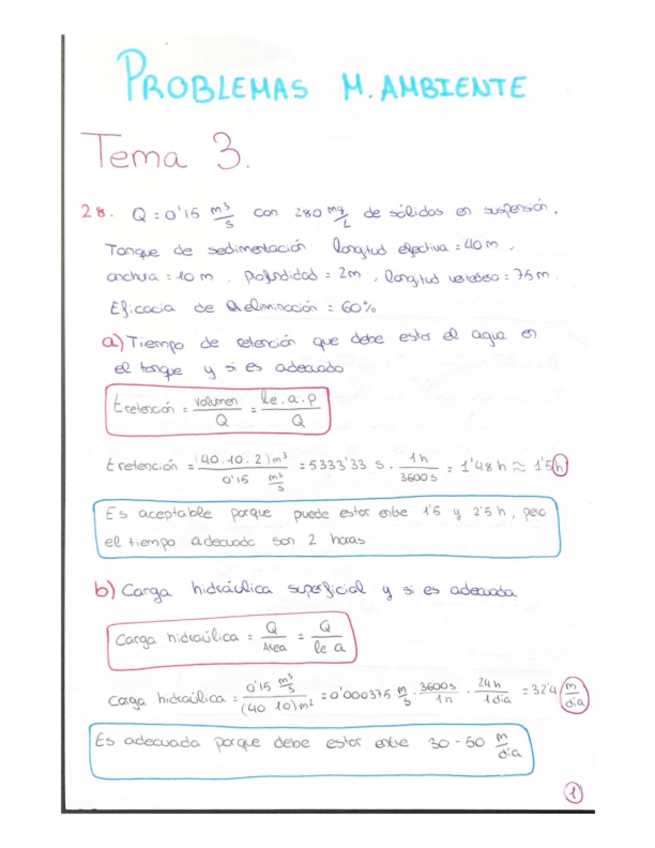 PROBLEMAS M. AMBIENTE
Tema 3.
28. Q = 0'15 m³/s con 280 mg/L de sólidos en suspensión.
Tanque de sedimentación longitud efectiva = 40 m,
anchura = 10 m, profundidad = 2m, longitud vertedero = 75 m.
Eficacia de eliminación = 60%
a) Tiempo de retención que debe estar el agua en
el tanque y si es adecuado
t retención = volumen/Q = le.a.p/Q
t retención = (40.10.2)m³/0'15 m³/s = 5333'33 s. 1h/3600s = 1'48 h ≈ 1'5 h
Es aceptable porque puede estar entre 1'5 y 2'5 h, pero
el tiempo adecuado son 2 horas
b) Carga hidráulica superficial y si es adecuada
Carga hidraúlica = Q/Area = Q/le a
Carga hidraúlica = 0'15 m³/s/(40 10)m² = 0'000375 m/s . 3600s/1h . 24h/1día = 32'4 m/día
Es adecuada porque debe estar entre 30-50 m/día
1